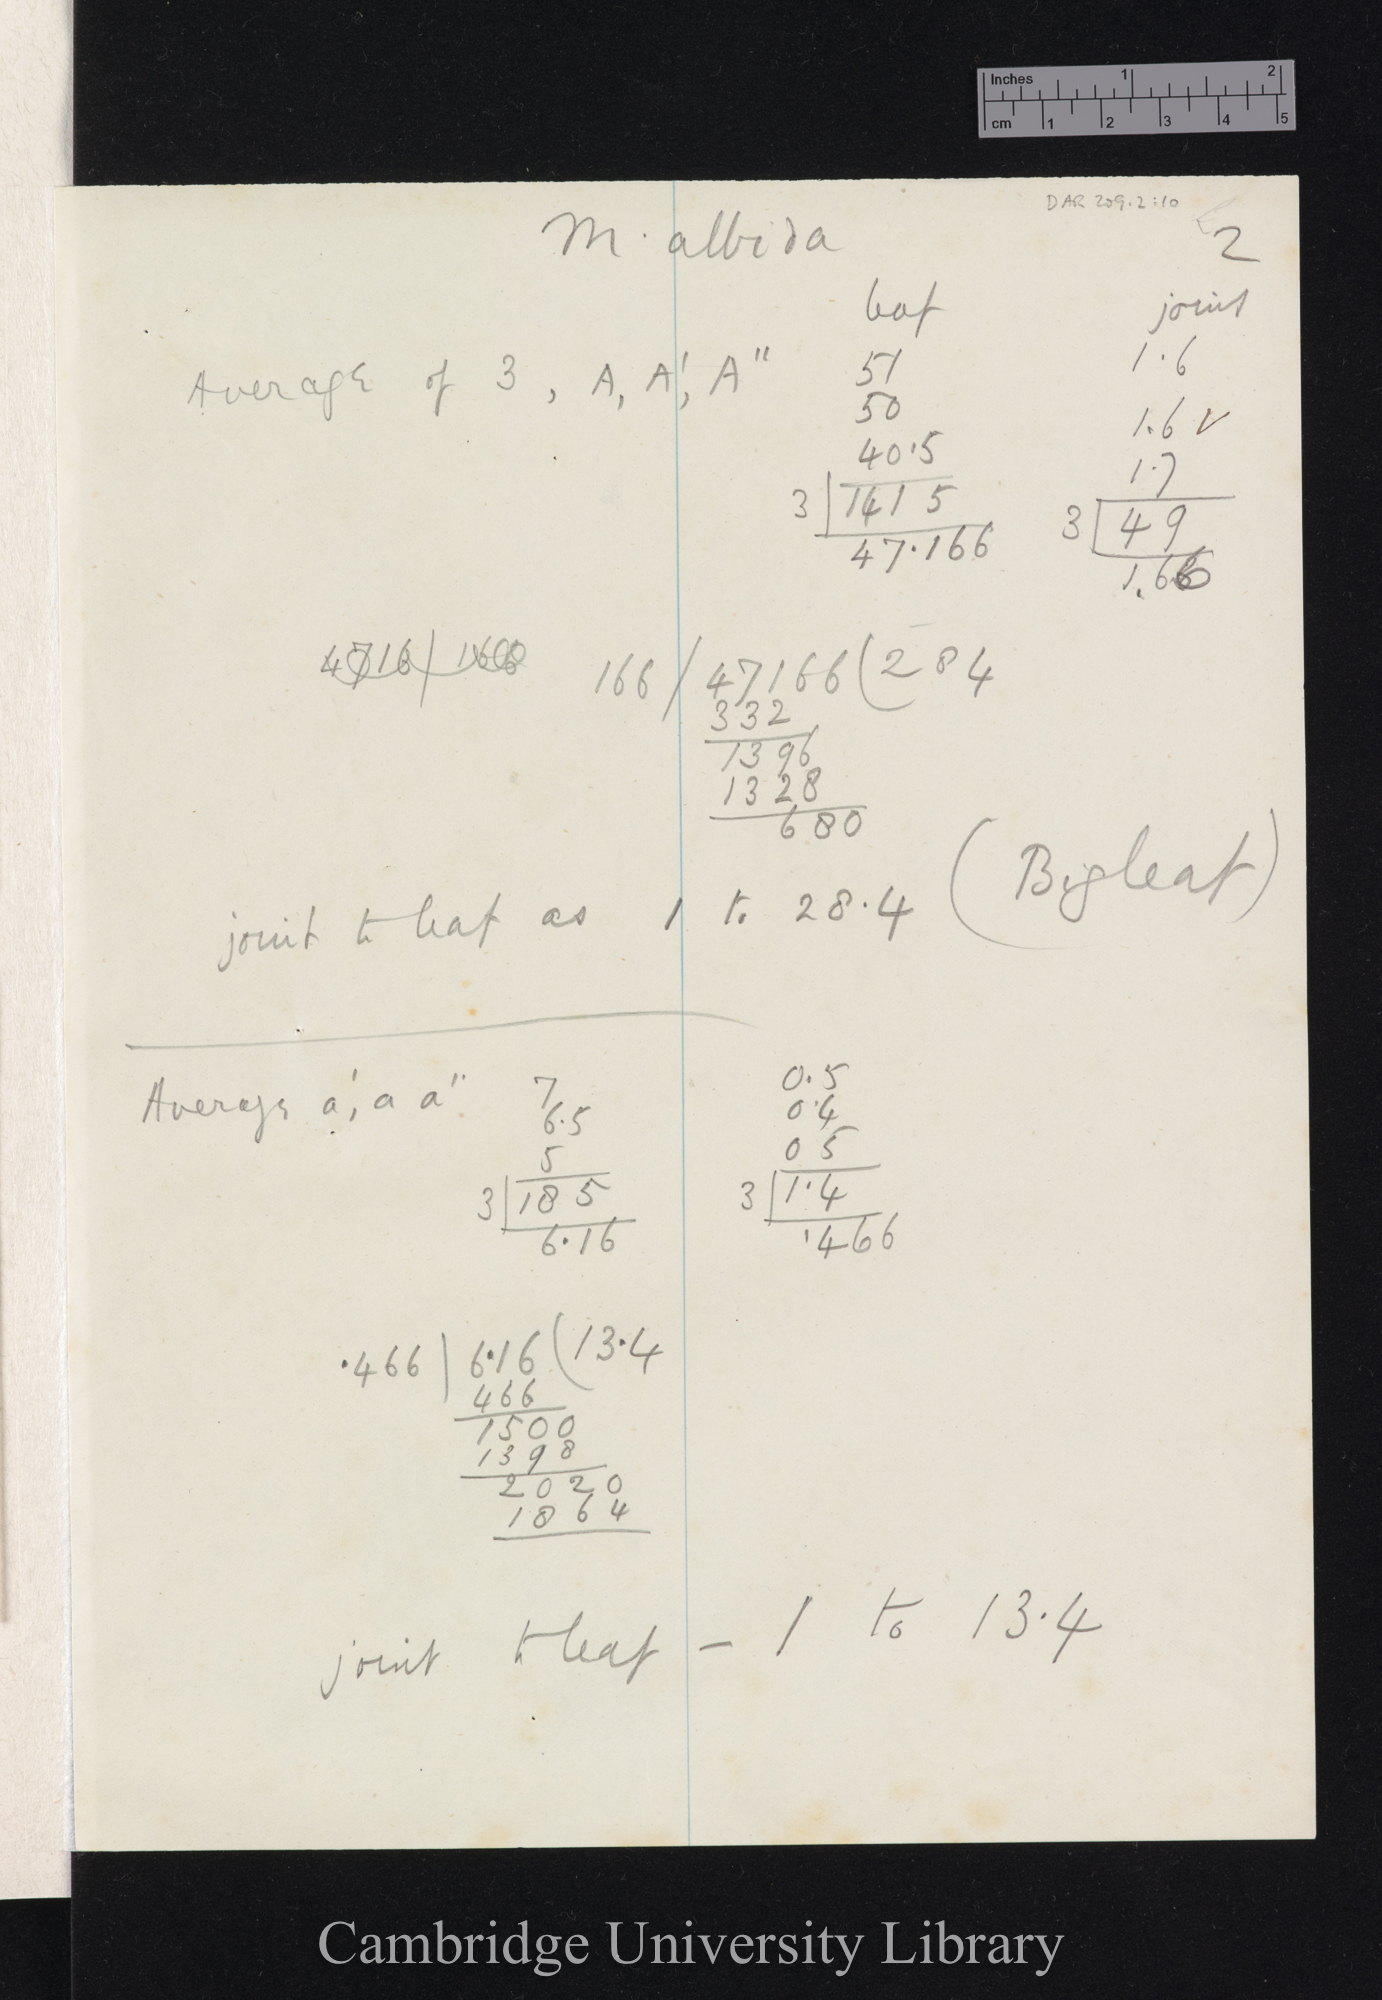 Inches 1 2
cm 1 2 3 4 5
DAR 209.2:10
M. albida
2
leaf joint
Average of 3, A, A', A" 51 1.6
50 1.6 ✓
40.5 1.7
3 | 141 5 3 | 4 9
47.166 1.66
4716 / 1666 166 / 47166 ( 284
332
1396
1328
680
joint to leaf as 1 to 28.4 (Big leaf)
Average a', a a" 7 0.5
6.5 0.4
5 0 5
3 | 18 5 3 | 1.4
6.16 .466
.466 | 6.16 ( 13.4
466
1500
1398
2020
1864
joint to leaf – 1 to 13.4
Cambridge University Library